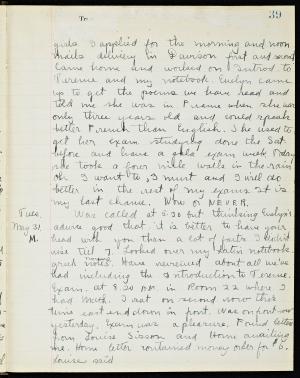 39
girls I applied for the morning and noon
mails delivery in Davison first and second
Came home and worked on Introd. to
Terence and my notebook. Evelyn came
up to get the poems we have read and
told me she was in France when she was
only three years old and could speak
better French than English. She used to
get her exam. studying done the Sat.
before and have a gala exam week. Today
she took a four mile walk in the rain
Oh I want to, I must and I will do
better in the rest of my exams. It is
my last chance. Now or NEVER.
Tues. Was called at 5:30 but thinking Evelyn's
May 31. advice good that it is better to have your
M. head with you than a lot of facts I didn't
rise till 7. Looked over my Latin notebook
notes. Have reviewed about all we've
had including the Introduction to Terence.
Exam. at 8:30 in Room 22 where I
had Math. I sat on second row this
time east end down in front. Was on front row
yesterday. Exam was a pleasure. Found letters
from Louise Sisson and Home awaiting
me. Home letter contained money order for $6.
Louise said